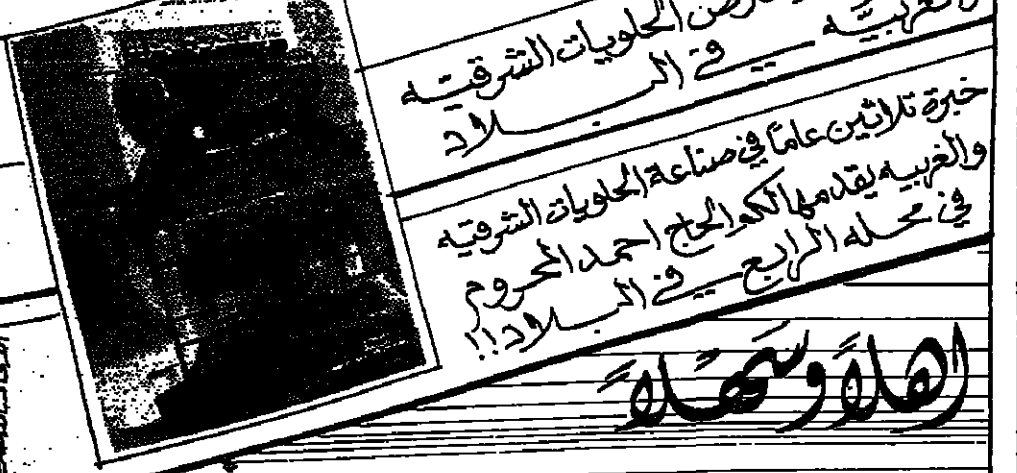 الحلويات الشرقيه
والغربيه في البلاد
خبرة ثلاثين عامًا في صناعة الحلويات الشرقيه
والغربيه يقدمها لكم الحاج احمد المحروم
في محله الرابع في البلاد!!
اهلاً وسهلاً